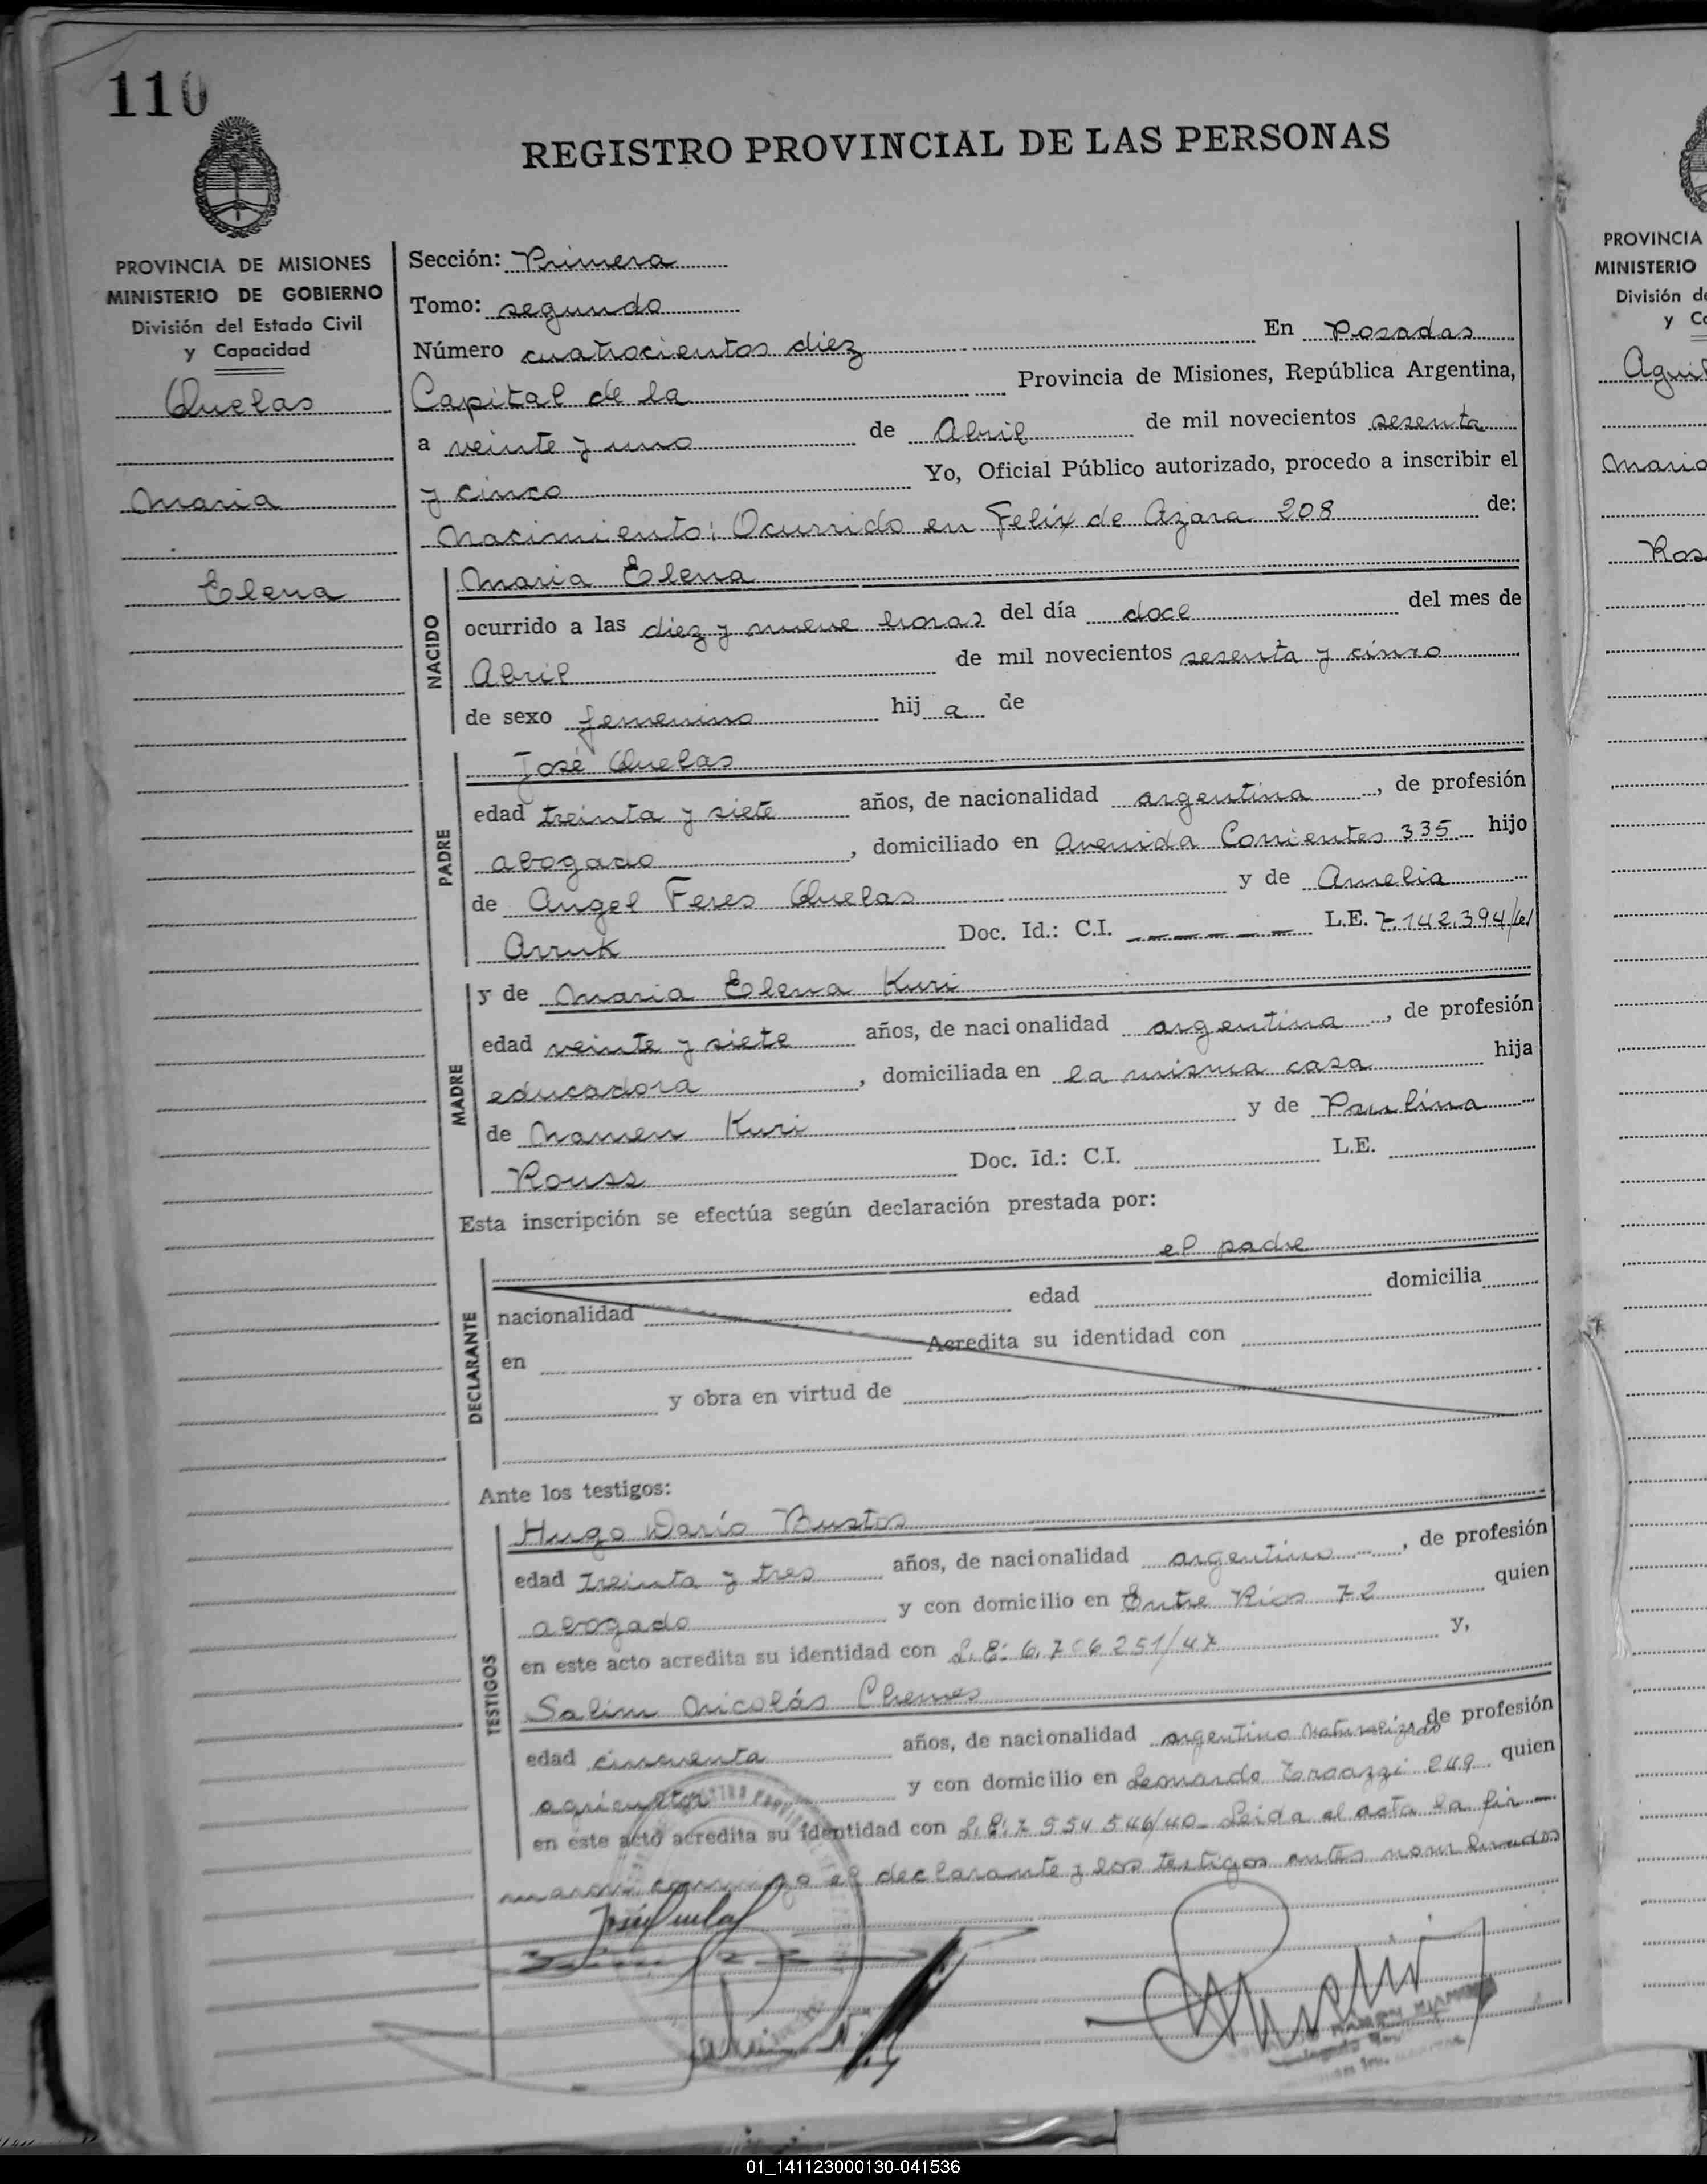 110
REGISTRO PROVINCIAL DE LAS PERSONAS
PROVINCIA DE MISIONES
MINISTERIO DE GOBIERNO
División del Estado Civil
y Capacidad
Quelas
Maria
Elena
Sección: Primera
Tomo: segundo
Número cuatrocientos diez En Posadas
Capital de la Provincia de Misiones, República Argentina,
a veinte y uno de Abril de mil novecientos sesenta
y cinco Yo, Oficial Público autorizado, procedo a inscribir el
Nacimiento: Ocurrido en Felix de Azara 208 de:
NACIDO
Maria Elena
ocurrido a las diez y nueve horas del día doce del mes de
Abril de mil novecientos sesenta y cinco
de sexo femenino hij a de
PADRE
José Quelas
edad treinta y siete años, de nacionalidad argentina, de profesión
abogado, domiciliado en Avenida Corrientes 335 hijo
de Angel Feres Quelas y de Amelia
Arruk Doc. Id.: C.I. ------ L.E. 7.142.394
MADRE
y de Maria Elena Kuri
edad veinte y siete años, de nacionalidad argentina, de profesión
educadora, domiciliada en la misma casa hija
de Kuri y de Paulina
Rouss Doc. Id.: C.I. L.E.
Esta inscripción se efectúa según declaración prestada por:
el padre
DECLARANTE
nacionalidad edad domicilia
en Acredita su identidad con
y obra en virtud de
Ante los testigos:
TESTIGOS
Hugo Darío Bustos
edad treinta y tres años, de nacionalidad argentino, de profesión
abogado y con domicilio en Entre Rios 72 quien
en este acto acredita su identidad con L.E: 6.706.251/47 y,
Salim Nicolás Chemes
edad cincuenta años, de nacionalidad argentino naturalizado de profesión
agricultor y con domicilio en Leonardo 249 quien
en este acto acredita su identidad con L.E: 7.554.546/40_ Leida el acta la fir-
maron conmigo el declarante y los testigos antes nombrados
PROVINCIA
MINISTERIO
División de
y Ca
Maria
Ros
01_141123000130-041536